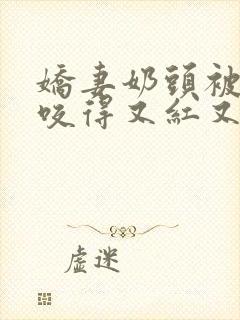 嬌妻奶頭被
咬得又紅又
虛迷